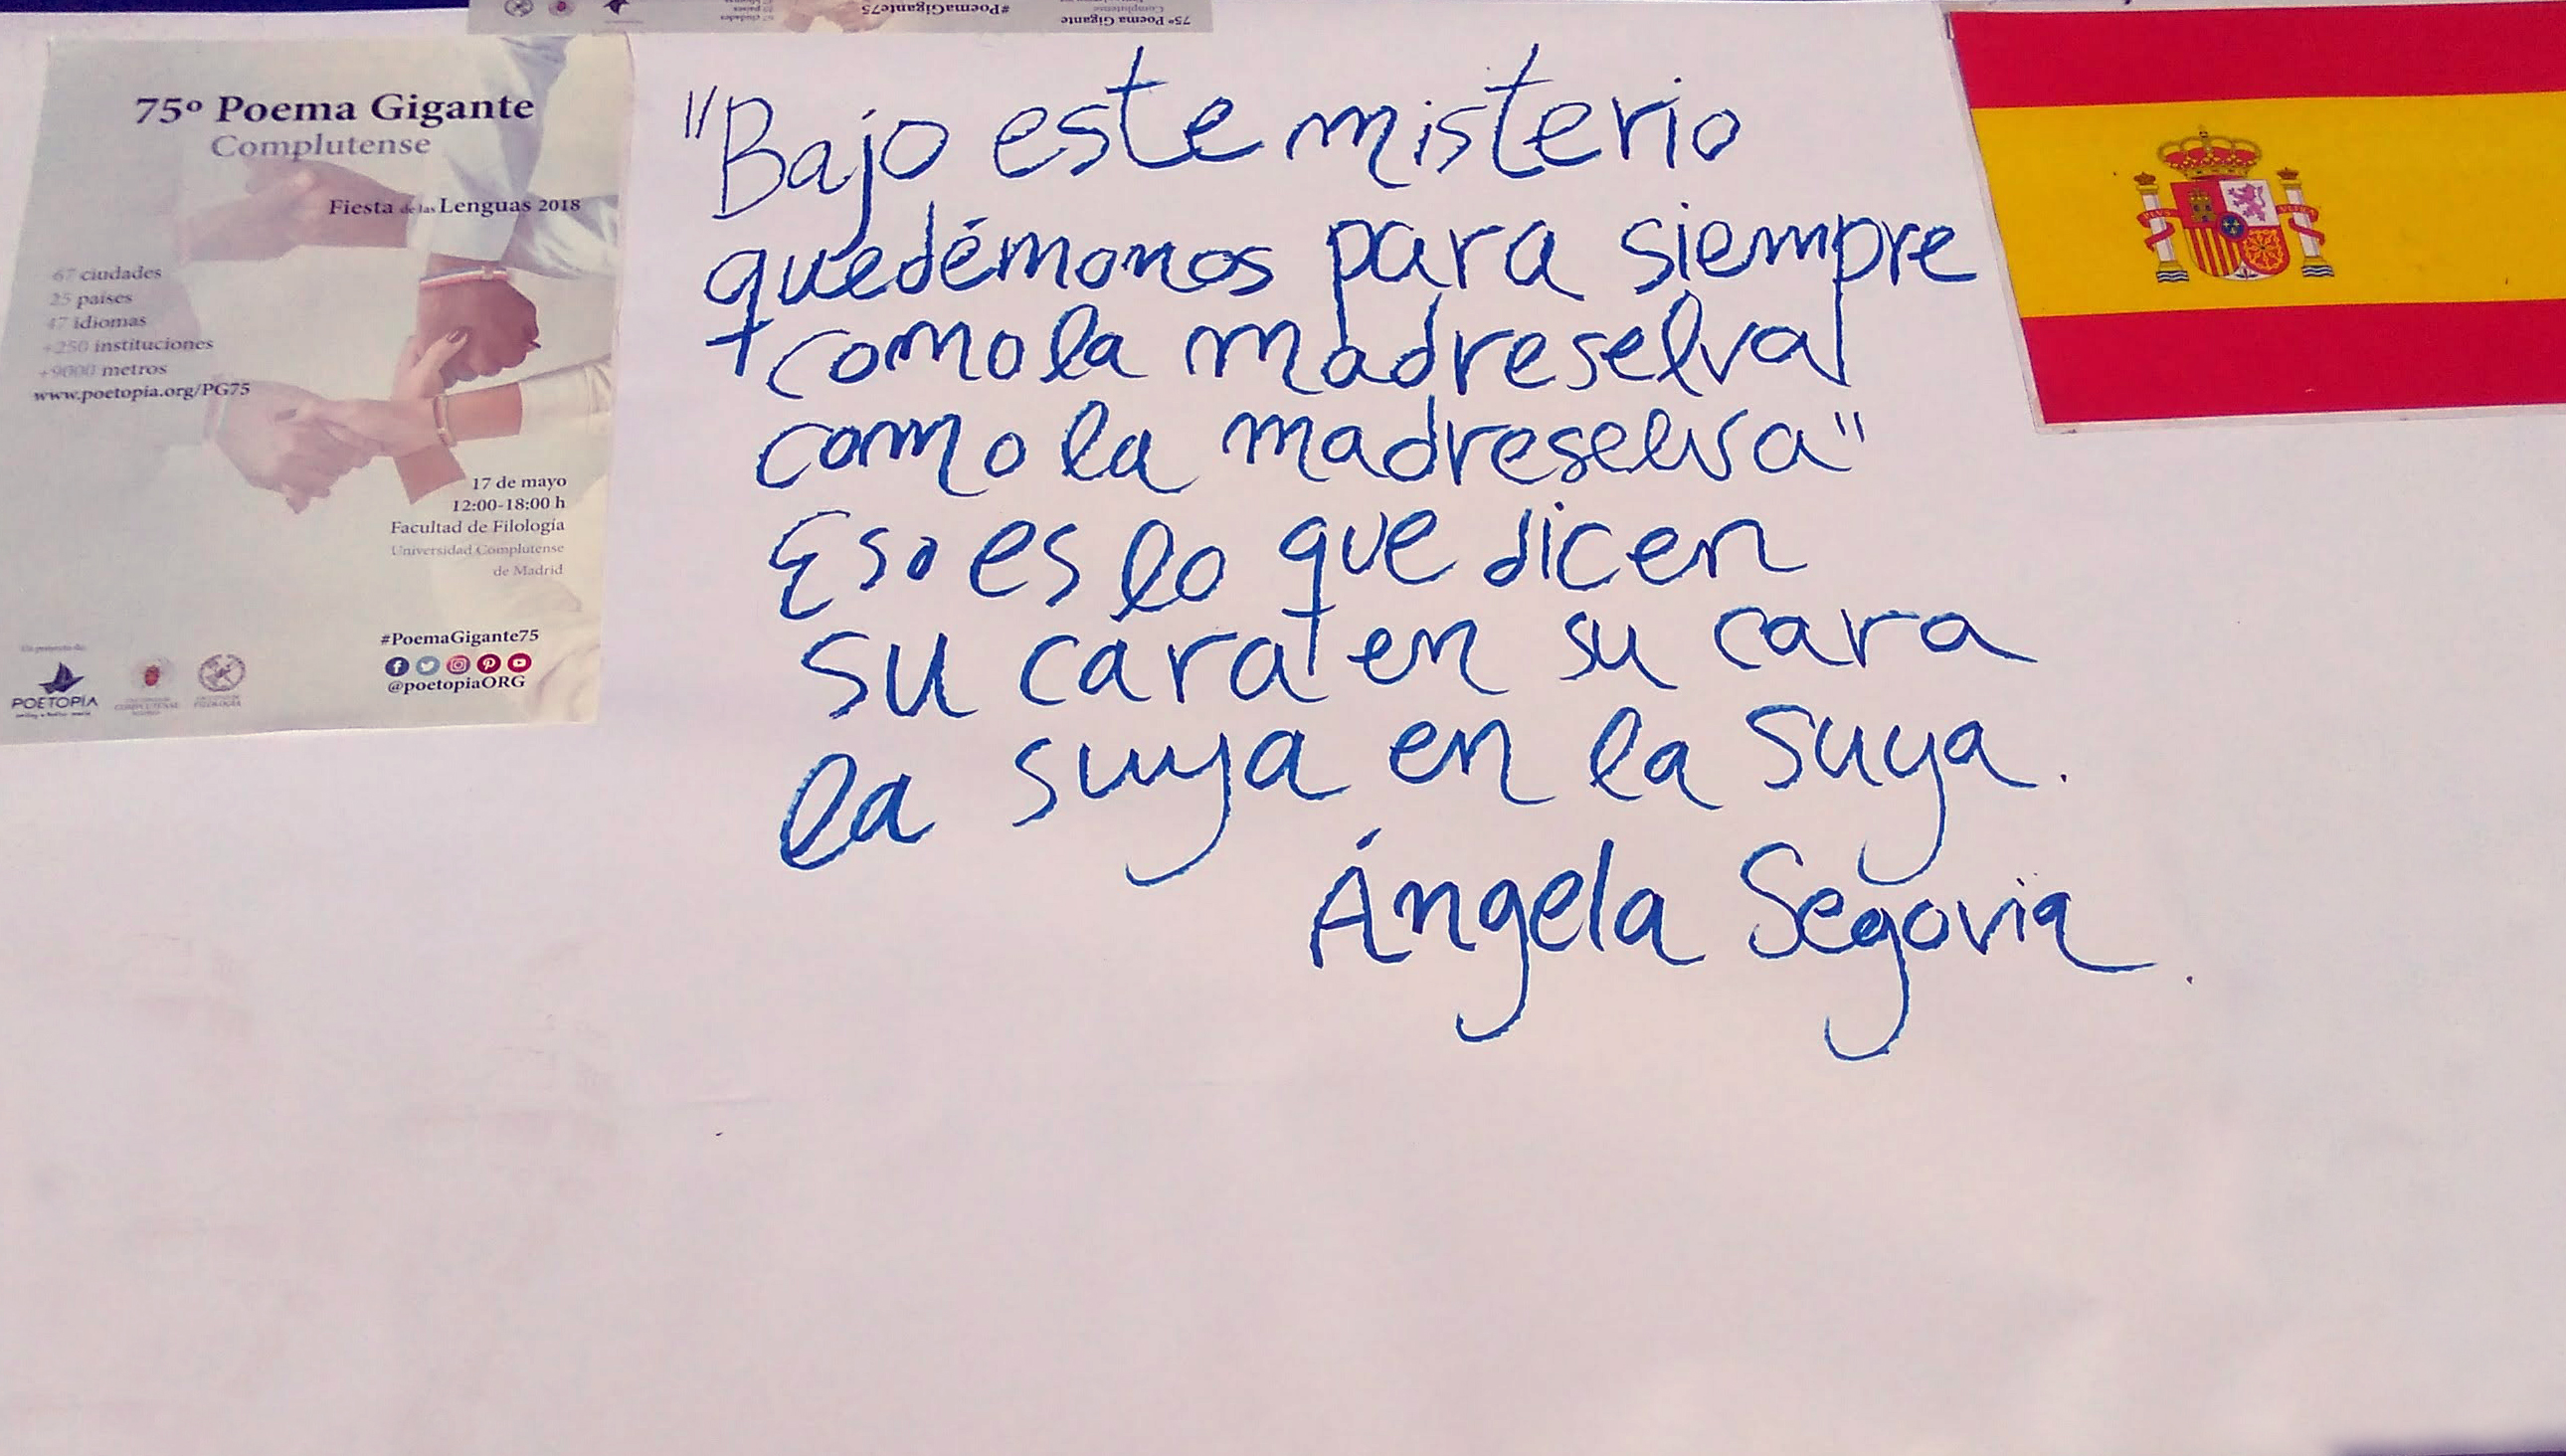 75º Poema Gigante
Complutense
Fiesta de las Lenguas 2018
67 ciudades
25 países
47 idiomas
+250 instituciones
+9000 metros
www.poetopia.org/PG75
17 de mayo
12:00-18:00 h
Facultad de Filología
Universidad Complutense
de Madrid
#PoemaGigante75
@poetopiaORG
POETOPIA
75º Poema Gigante
Complutense
#PoemaGigante75
"Bajo este misterio
quedémonos para siempre
como la madreselva
como la madreselva"
Eso es lo que dicen
su cara en su cara
la suya en la suya.
Ángela Segovia.